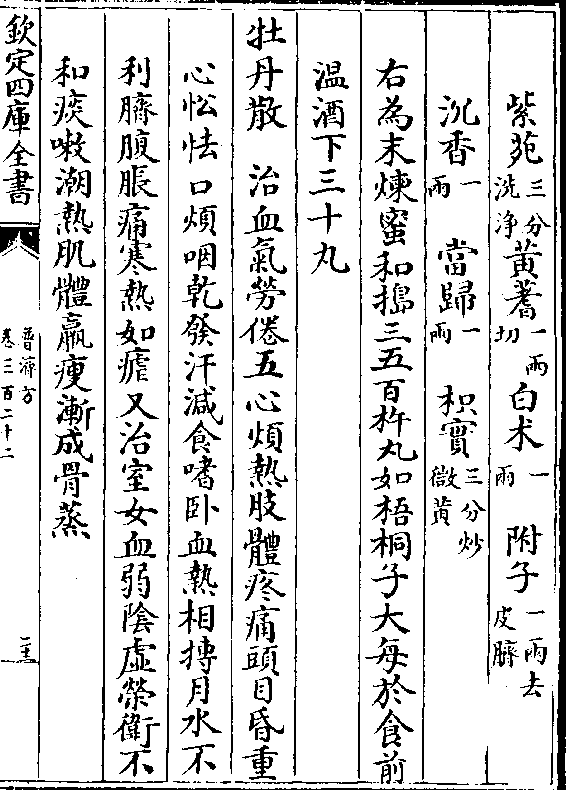 紫菀三分洗淨黄蓍一兩切白术一兩附子一兩去皮臍
沉香一兩當歸一兩枳實三分炒微黄
右為末煉蜜和搗三五百杵丸如梧桐子大每於食前
温酒下三十丸
牡丹散 治血氣勞倦五心煩熱肢體疼痛頭目昏重
心忪怯口煩咽乾發汗減食嗜卧血熱相搏月水不
利臍腹脹痛寒熱如瘧又治室女血弱陰虛榮衛不
和痰嗽潮熱肌體羸瘦漸成骨蒸
欽定四庫全書
普濟方
卷三百二十二